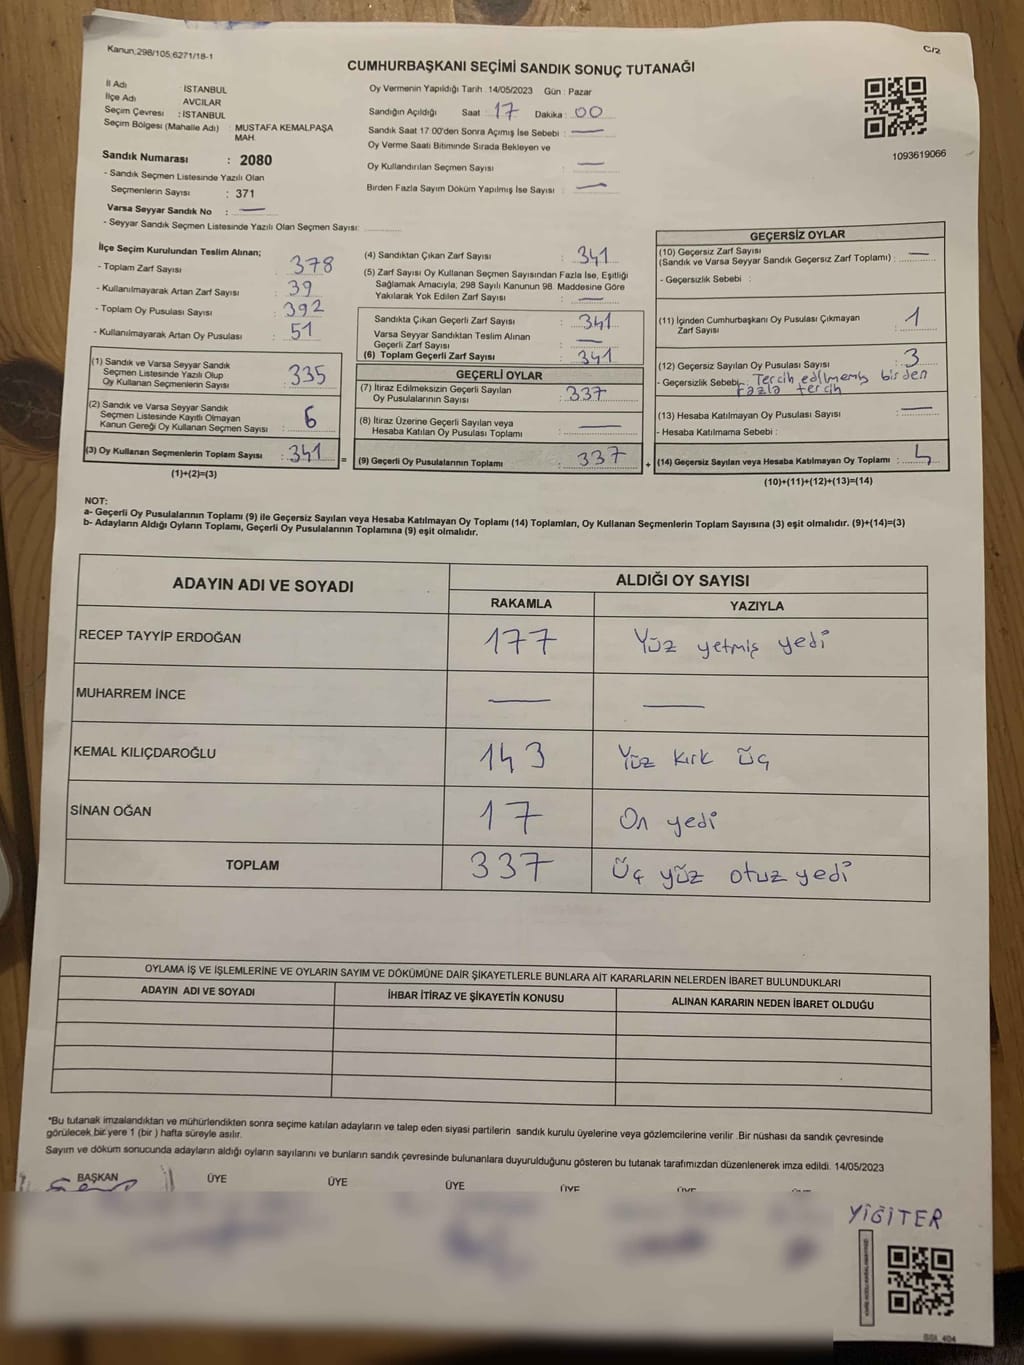 Kanun,298/105,6271/18-1
C/2
CUMHURBAŞKANI SEÇİMİ SANDIK SONUÇ TUTANAĞI
İl Adı : İSTANBUL
İlçe Adı : AVCILAR
Seçim Çevresi : İSTANBUL
Seçim Bölgesi (Mahalle Adı) : MUSTAFA KEMALPAŞA
MAH.
Sandık Numarası : 2080
- Sandık Seçmen Listesinde Yazılı Olan
Seçmenlerin Sayısı : 371
Varsa Seyyar Sandık No : —
- Seyyar Sandık Seçmen Listesinde Yazılı Olan Seçmen Sayısı:
Oy Vermenin Yapıldığı Tarih :14/05/2023 Gün : Pazar
Sandığın Açıldığı Saat : 17 Dakika : 00
Sandık Saat 17:00'den Sonra Açımış İse Sebebi : —
Oy Verme Saati Bitiminde Sırada Bekleyen ve
Oy Kullandırılan Seçmen Sayısı : —
Birden Fazla Sayım Döküm Yapılmış İse Sayısı : —
1093619066
İlçe Seçim Kurulundan Teslim Alınan;
- Toplam Zarf Sayısı : 378
- Kullanılmayarak Artan Zarf Sayısı : 39
- Toplam Oy Pusulası Sayısı : 392
- Kullanılmayarak Artan Oy Pusulası : 51
(1) Sandık ve Varsa Seyyar Sandık
Seçmen Listesinde Yazılı Olup
Oy Kullanan Seçmenlerin Sayısı : 335
(2) Sandık ve Varsa Seyyar Sandık
Seçmen Listesinde Kayıtlı Olmayan
Kanun Gereği Oy Kullanan Seçmen Sayısı : 6
(3) Oy Kullanan Seçmenlerin Toplam Sayısı : 341 =
(1)+(2)=(3)
(4) Sandıktan Çıkan Zarf Sayısı : 341
(5) Zarf Sayısı Oy Kullanan Seçmen Sayısından Fazla İse, Eşitliği
Sağlamak Amacıyla, 298 Sayılı Kanunun 98. Maddesine Göre
Yakılarak Yok Edilen Zarf Sayısı : —
Sandıkta Çıkan Geçerli Zarf Sayısı : 341
Varsa Seyyar Sandıktan Teslim Alınan
Geçerli Zarf Sayısı : —
(6) Toplam Geçerli Zarf Sayısı : 341
GEÇERLİ OYLAR
(7) İtiraz Edilmeksizin Geçerli Sayılan
Oy Pusulalarının Sayısı : 337
(8) İtiraz Üzerine Geçerli Sayılan veya
Hesaba Katılan Oy Pusulası Toplamı : —
(9) Geçerli Oy Pusulalarının Toplamı : 337 +
GEÇERSİZ OYLAR
(10) Geçersiz Zarf Sayısı
(Sandık ve Varsa Seyyar Sandık Geçersiz Zarf Toplamı) : —
- Geçersizlik Sebebi :
(11) İçinden Cumhurbaşkanı Oy Pusulası Çıkmayan
Zarf Sayısı : 1
(12) Geçersiz Sayılan Oy Pusulası Sayısı : 3
- Geçersizlik Sebebi : Tercih edilmemiş birden
fazla tercih
(13) Hesaba Katılmayan Oy Pusulası Sayısı : —
- Hesaba Katılmama Sebebi :
(14) Geçersiz Sayılan veya Hesaba Katılmayan Oy Toplamı : 4
(10)+(11)+(12)+(13)=(14)
NOT:
a- Geçerli Oy Pusulalarının Toplamı (9) ile Geçersiz Sayılan veya Hesaba Katılmayan Oy Toplamı (14) Toplamları, Oy Kullanan Seçmenlerin Toplam Sayısına (3) eşit olmalıdır. (9)+(14)=(3)
b- Adayların Aldığı Oyların Toplamı, Geçerli Oy Pusulalarının Toplamına (9) eşit olmalıdır.
ADAYIN ADI VE SOYADI
ALDIĞI OY SAYISI
RAKAMLA YAZIYLA
RECEP TAYYİP ERDOĞAN 177 Yüz yetmiş yedi
MUHARREM İNCE — —
KEMAL KILIÇDAROĞLU 143 Yüz kırk üç
SİNAN OĞAN 17 On yedi
TOPLAM 337 Üç yüz otuz yedi
OYLAMA İŞ VE İŞLEMLERİNE VE OYLARIN SAYIM VE DÖKÜMÜNE DAİR ŞİKAYETLERLE BUNLARA AİT KARARLARIN NELERDEN İBARET BULUNDUKLARI
ADAYIN ADI VE SOYADI İHBAR İTİRAZ VE ŞİKAYETİN KONUSU ALINAN KARARIN NEDEN İBARET OLDUĞU
*Bu tutanak imzalandıktan ve mühürlendikten sonra seçime katılan adayların ve talep eden siyasi partilerin sandık kurulu üyelerine veya gözlemcilerine verilir .Bir nüshası da sandık çevresinde
görülecek bir yere 1 (bir ) hafta süreyle asılır.
Sayım ve döküm sonucunda adayların aldığı oyların sayılarını ve bunların sandık çevresinde bulunanlara duyurulduğunu gösteren bu tutanak tarafımızdan düzenlenerek imza edildi. 14/05/2023
BAŞKAN ÜYE ÜYE ÜYE ÜYE ÜYE
YİĞİTER